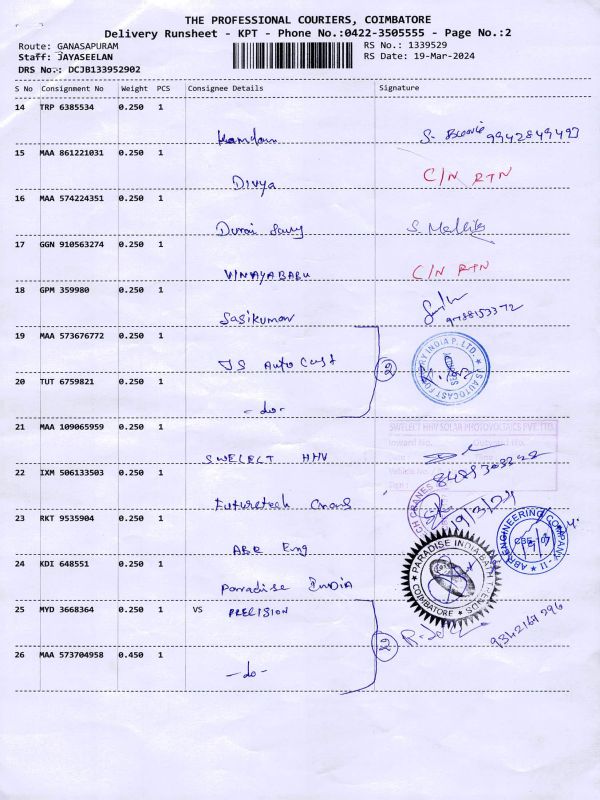 THE PROFESSIONAL COURIERS, COIMBATORE
Delivery Runsheet - KPT - Phone No.:0422-3505555 - Page No.:2
Route: GANASAPURAM
RS No.: 1339529
Staff: JAYASEELAN
RS Date: 19-Mar-2024
DRS No.: DCJB133952902
S No Consignment No Weight PCS Consignee Details Signature
14 TRP 6385534 0.250 1
S. 9942849493
15 MAA 861221031 0.250 1
Divya C/N RTN
16 MAA 574224351 0.250 1
Durai Samy S. Mallika
17 GGN 910563274 0.250 1
VINAYABABU C/N RTN
18 GPM 359980 0.250 1
Sasikumar
19 MAA 573676772 0.250 1
JS Auto Cast
2
JS AUTOCAST FOUNDRY INDIA P. LTD.
20 TUT 6759821 0.250 1
-do-
21 MAA 109065959 0.250 1
SWELECT HHV SOLAR PHOTOVOLTAICS PVT. LTD.
Inward No.
SWELECT HHV
22 IXM 506133503 0.250 1
Futuretech Cranes
CH CRANES
19/3/24
23 RKT 9535904 0.250 1
ABR Eng
ABR ENGINEERING COMPANY - II
24 KDI 648551 0.250 1
Parradise India
PARADISE INDIA BATH VENUES
COIMBATORE
25 MYD 3668364 0.250 1 VS PRECISION
9342167296
26 MAA 573704958 0.450 1
-do-
2